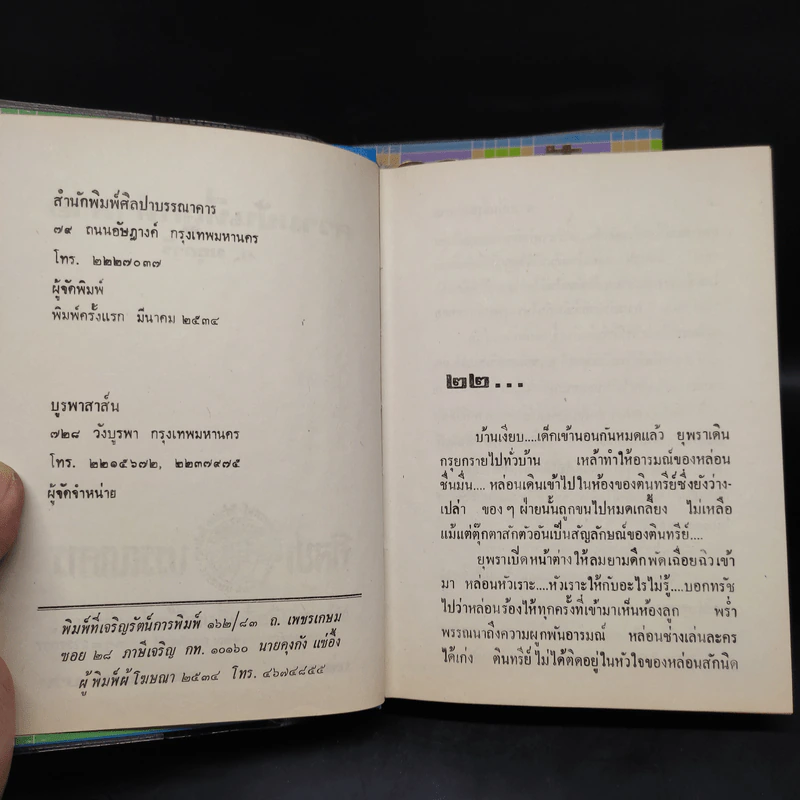 สำนักพิมพ์ศิลปาบรรณาคาร
๗๙ ถนนอัษฎางค์ กรุงเทพมหานคร
โทร. ๒๒๒๗๐๓๗
ผู้จัดพิมพ์
พิมพ์ครั้งแรก มีนาคม ๒๕๓๔
บูรพาสาส์น
๗๒๘ วังบูรพา กรุงเทพมหานคร
โทร. ๒๒๑๕๖๗๒, ๒๒๓๗๙๗๕
ผู้จัดจำหน่าย
พิมพ์ที่เจริญรัตน์การพิมพ์ ๑๖๒/๘๓ ถ. เพชรเกษม
ซอย ๒๘ ภาษีเจริญ กท. ๑๐๑๖๐ นายคุงกัง แซ่อึ้ง
ผู้พิมพ์ผู้โฆษณา ๒๕๓๔ โทร. ๔๖๗๔๘๕๕
๒๒...
บ้านเงียบ....เด็กเข้านอนกันหมดแล้ว ยุพราเดิน
กรุยกรายไปทั่วบ้าน เหล้าทำให้อารมณ์ของหล่อน
ชื่นมื่น.... หล่อนเดินเข้าไปในห้องของตินทรีย์ซึ่งยังว่าง-
เปล่า ของๆ ฝ่ายนั้นถูกขนไปหมดเกลี้ยง ไม่เหลือ
แม้แต่ตุ๊กตาสักตัวอันเป็นสัญลักษณ์ของตินทรีย์....
ยุพราเปิดหน้าต่างให้ลมยามดึกพัดเฉื่อยฉิวเข้า
มา หล่อนหัวเราะ....หัวเราะให้กับอะไรไม่รู้....บอกทรัช
ไปว่าหล่อนร้องไห้ทุกครั้งที่เข้ามาเห็นห้องลูก พร่ำ
พรรณนาถึงความผูกพันอารมณ์ หล่อนช่างเล่นละคร
ได้เก่ง ตินทรีย์ไม่ได้ติดอยู่ในหัวใจของหล่อนสักนิด